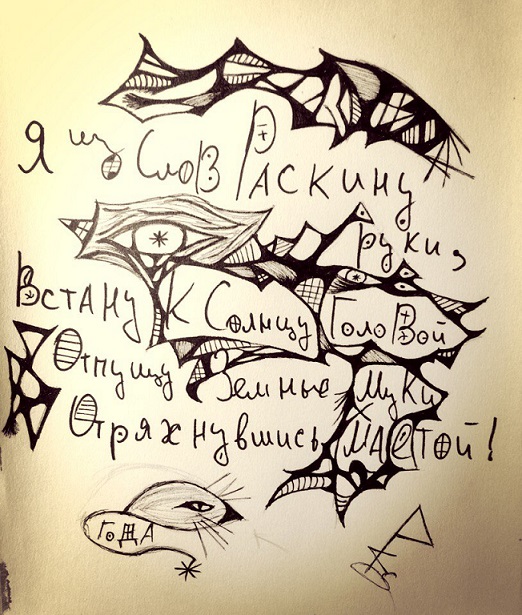 Я из Слов Раскину
руки,
Встану к Солнцу Головой
Отпущу Земные Муки
Отряхнувшись МАетой!